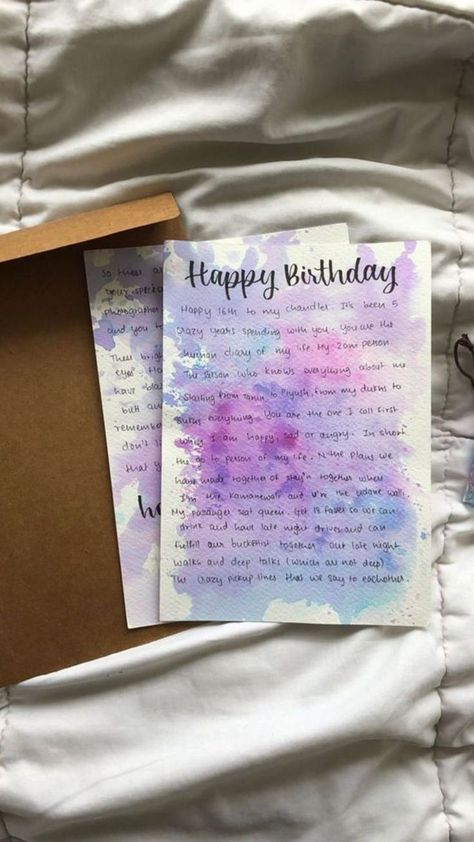 Happy Birthday
Happy 16th to my chandler. It's been 5
crazy years spending with you. You are the
human diary of my life My 2am person
The person who knows everything about me
Starting from to Piyush, from my dukhs to
everything. You are the one I call first
when I am happy, sad or angry. In short
the go to person of my life. N the plans we
have made together of stay'n together where
I'm the kamanewali and u're the udane wali.
My passanger seat queen. Get 18 faster so we can
drink and have late night drives and can
fulfill our bucketlist together. Our late night
walks and deep talks (which are not deep)
The crazy pickup lines that we say to eachother.
So these are
your
photographer
and you
These
eyes.
have
butt
remember
don't
that y